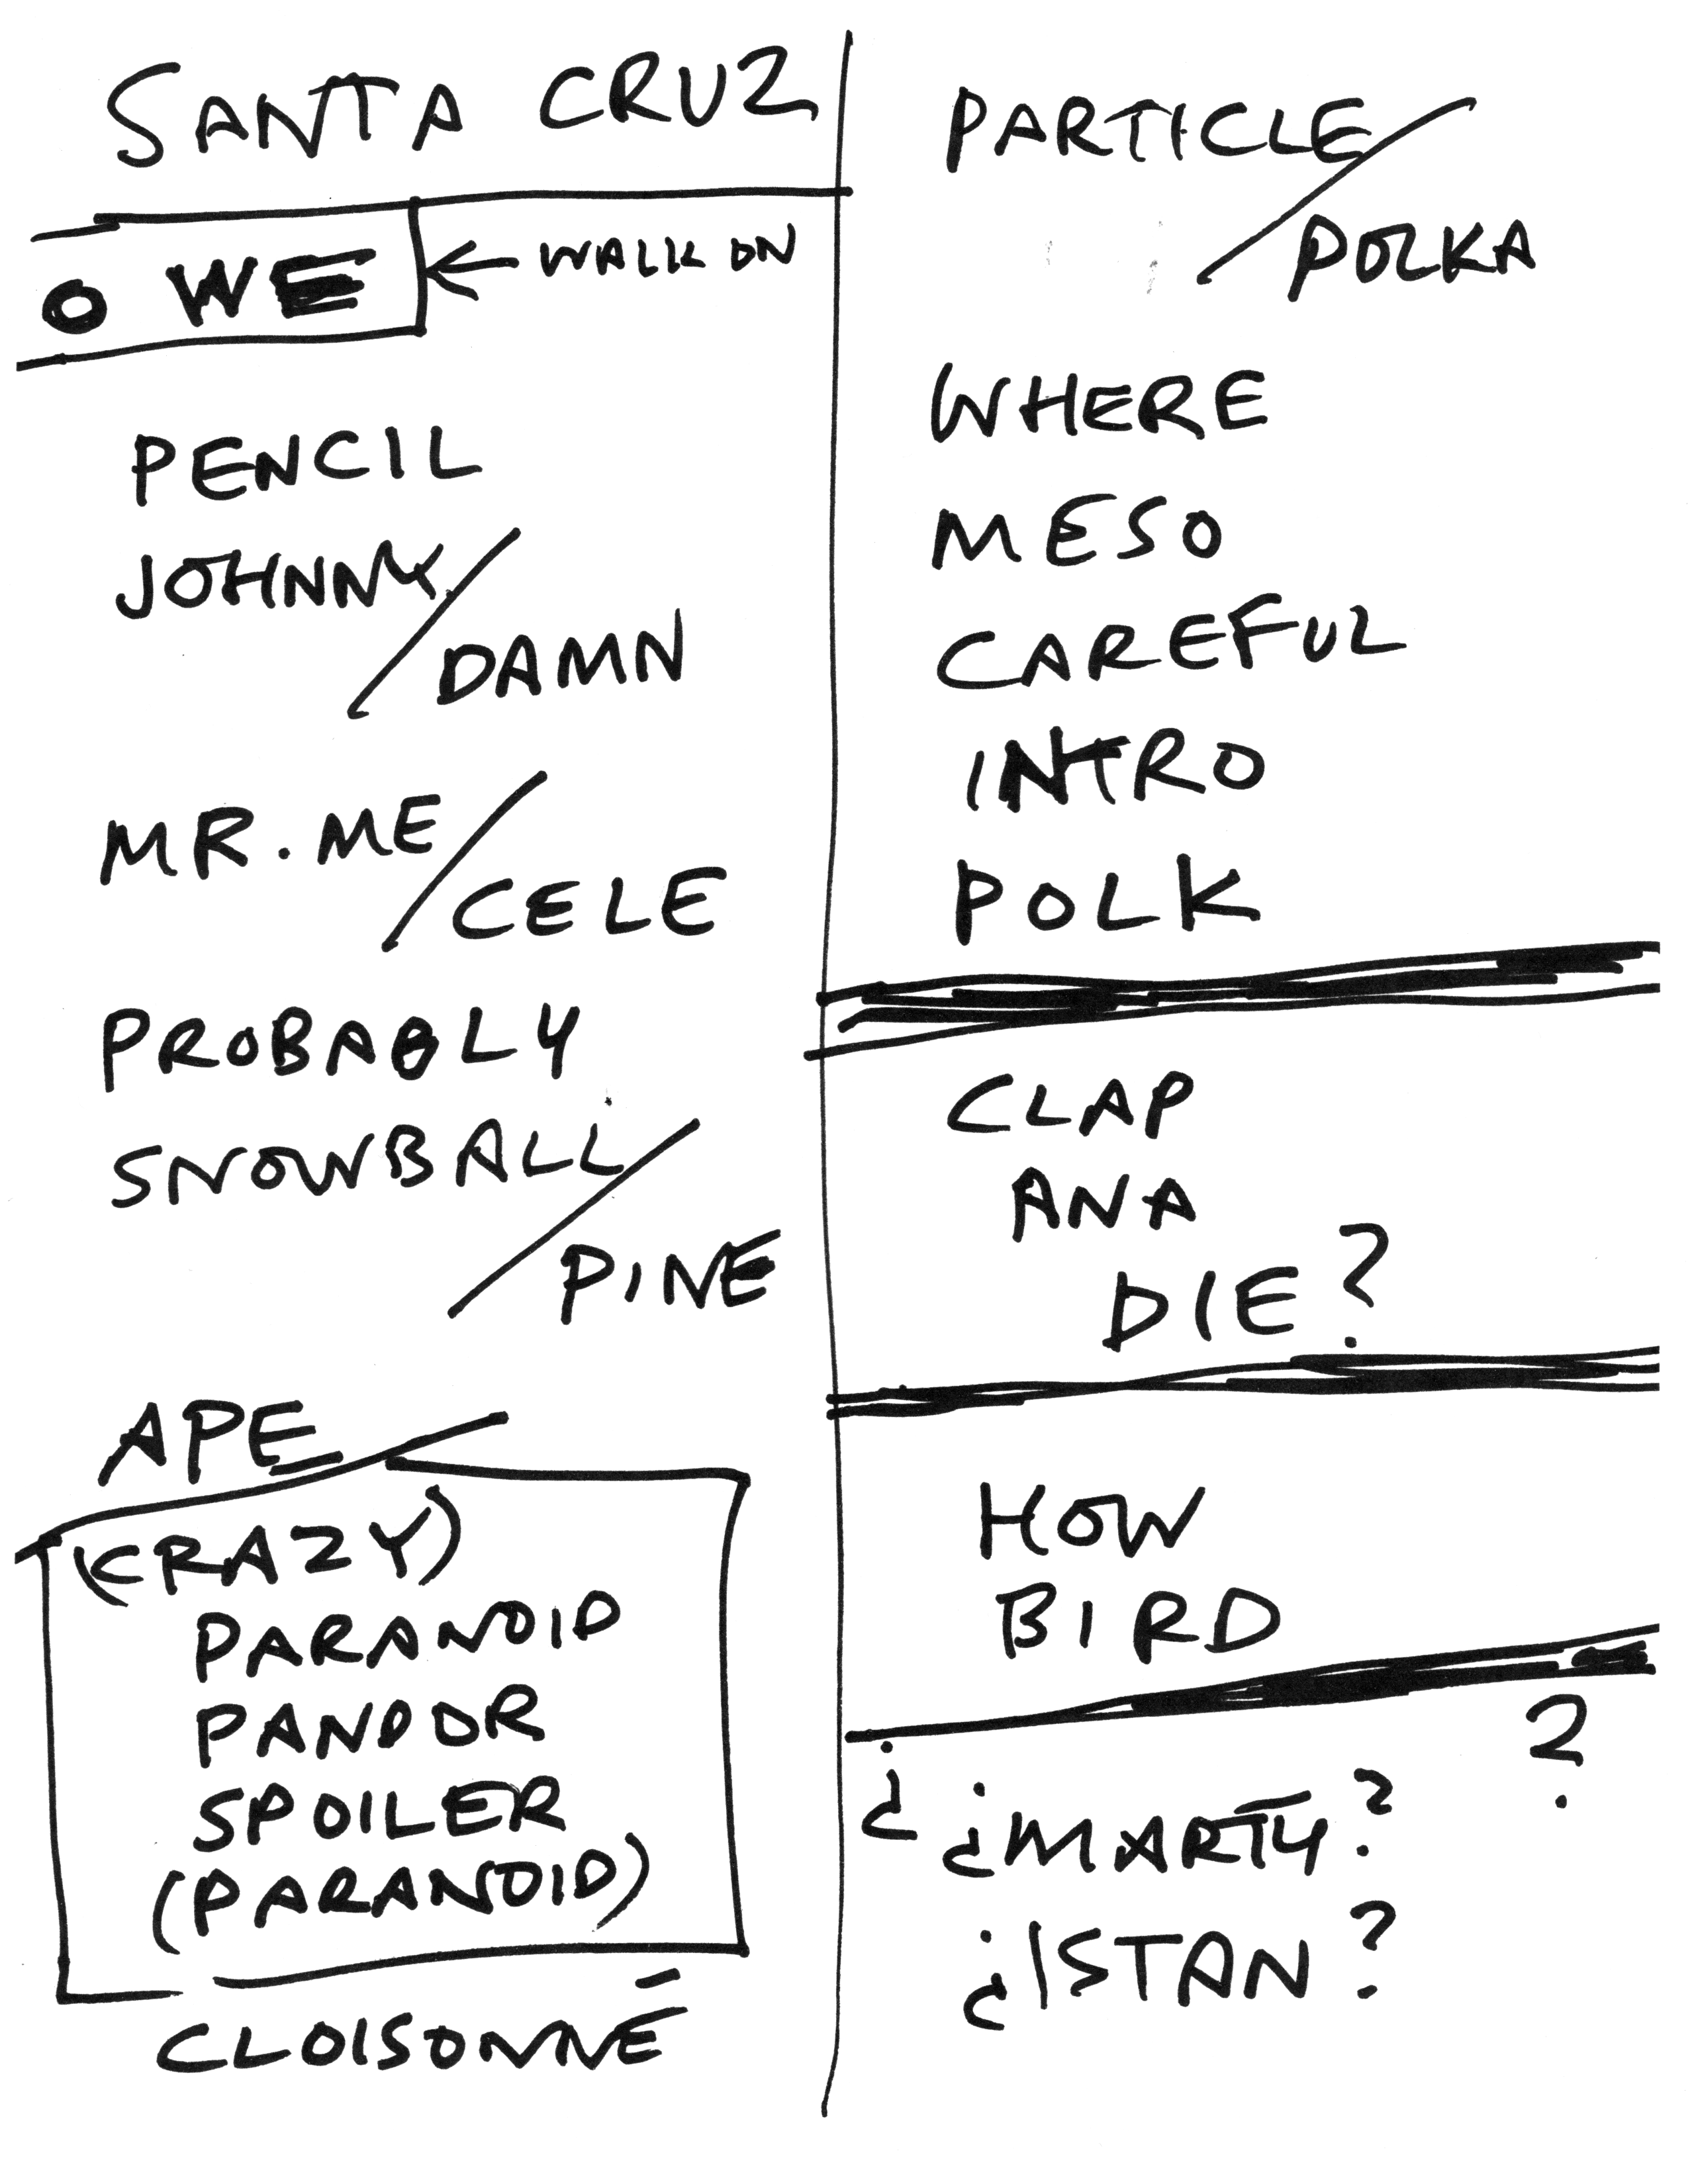 SANTA CRUZ
O WE ← WALK ON
PENCIL
JOHNNY/
DAMN
MR. ME/
CELE
PROBABLY
SNOWBALL/
PINE
APE
(CRAZY)
PARANOID
PANDOR
SPOILER
(PARANOID)
CLOISONNÉ
PARTICLE/
POLKA
WHERE
MESO
CAREFUL
INTRO
POLK
CLAP
ANA
DIE?
HOW
BIRD
¿ ¿MARTY? ?
¿ISTAN?